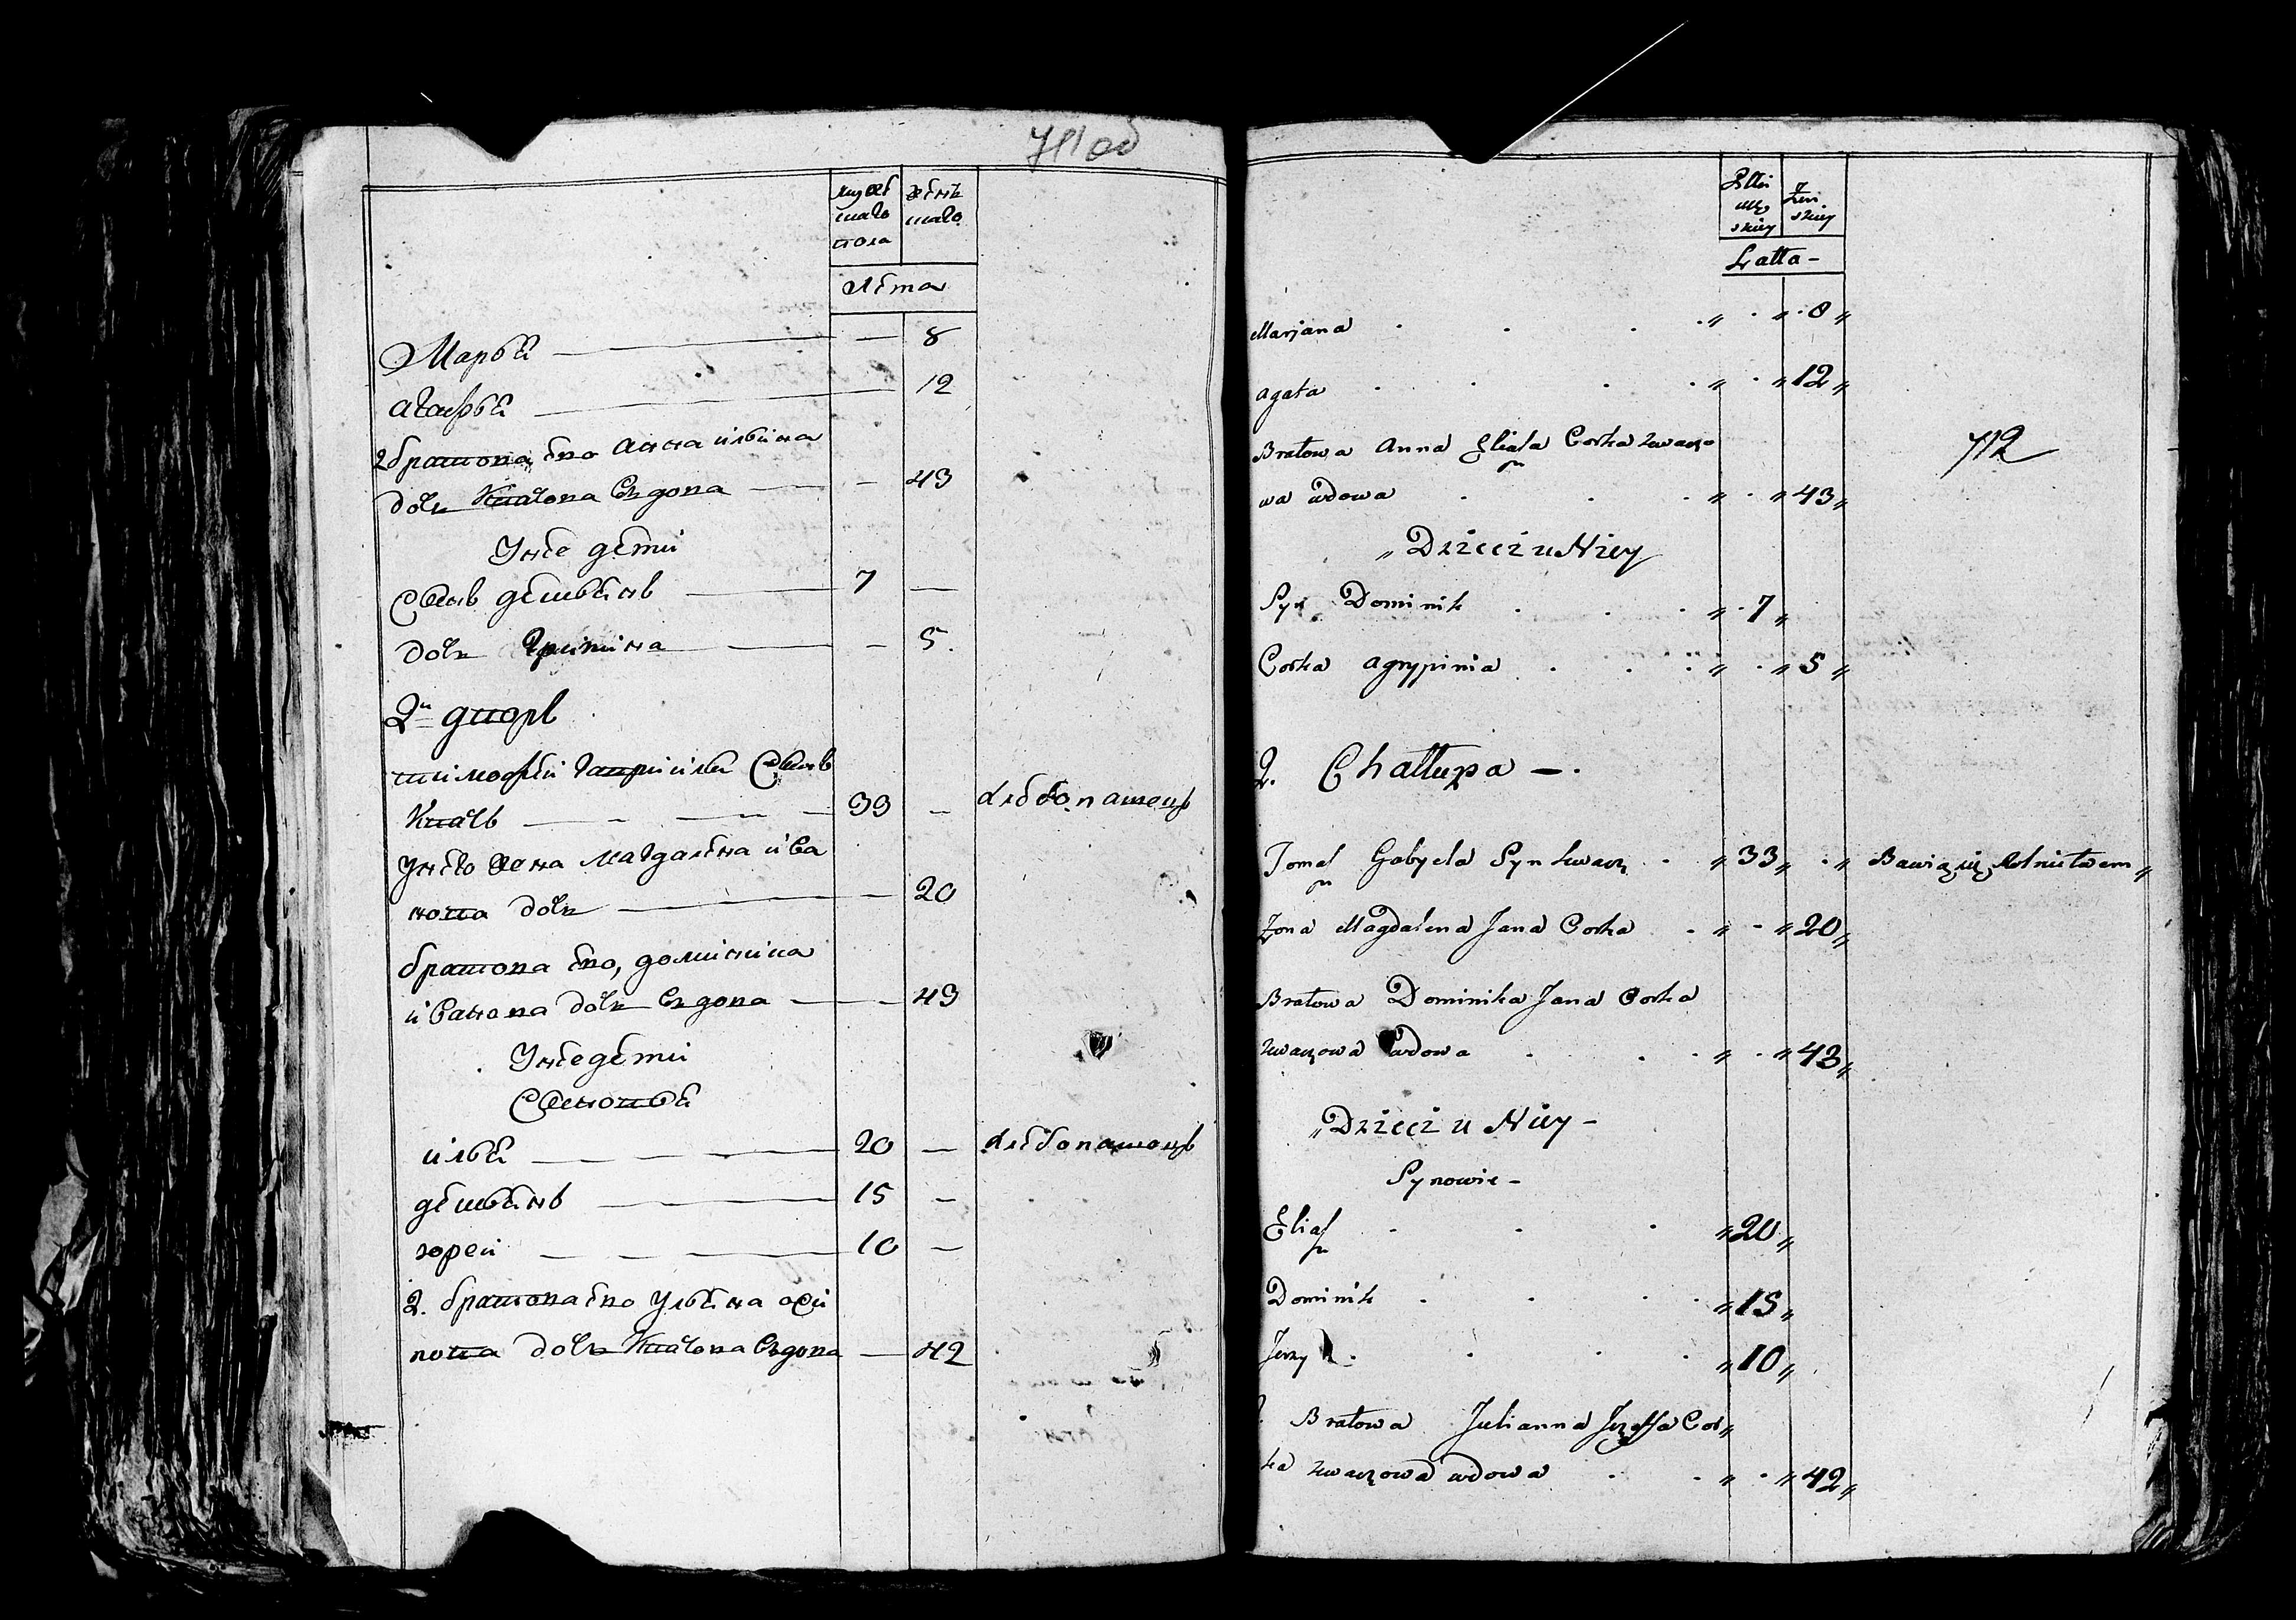 711 об
мужеска
го
пола
женска
го
лета
Марья — 8
Агафья — 12
2 братова его анна ильина
дочь Квачова вдова — 43
У нее дети
Сынъ демьянъ — 7
дочь — 5
2й дворъ
тимофей гавриилы Сынъ
Квачъ — 33 — хлебопашецъ
У него жена Магдалена ива
нова дочь — 20
братова его, доминика
иванова дочь вдова — 43
У нее дети
Сыновья
илья — 20 — хлебопашецъ
демьянъ — 15 —
юрей — 10 —
2. братова его Ульяна оси
пова дочь Квачова вдова — 42
Płci
męz
skiey
Żen
skiey
Latta -
Marjana „ . „ 8 „
agata „ . „ 12 „
Bratowa Anna Eliasza Corka kwaczo
wa wdowa „ . „ 43 „
712
„ Dzieci u Niey
Syn Dominik „ 7 „
Corka agrypinia „ . „ 5 „
2. Chattupa —.
Tomasz Gabryela Syn kwacz „ 33 „ . „ Bawią się Rolnictwem „
Zona Magdalena Jana Corka „ - „ 20 „
Bratowa Dominika Jana Corka
kwaczowa wdowa „ . „ 43 „
„ Dzieci u Niey -
Synowie -
Eliasz „ 20 „
Dominik „ 15 „
Jerzy „ 10 „
Bratowa Julianna Jozeffa Cor„
ka kwaczowa wdowa „ . „ 42 „